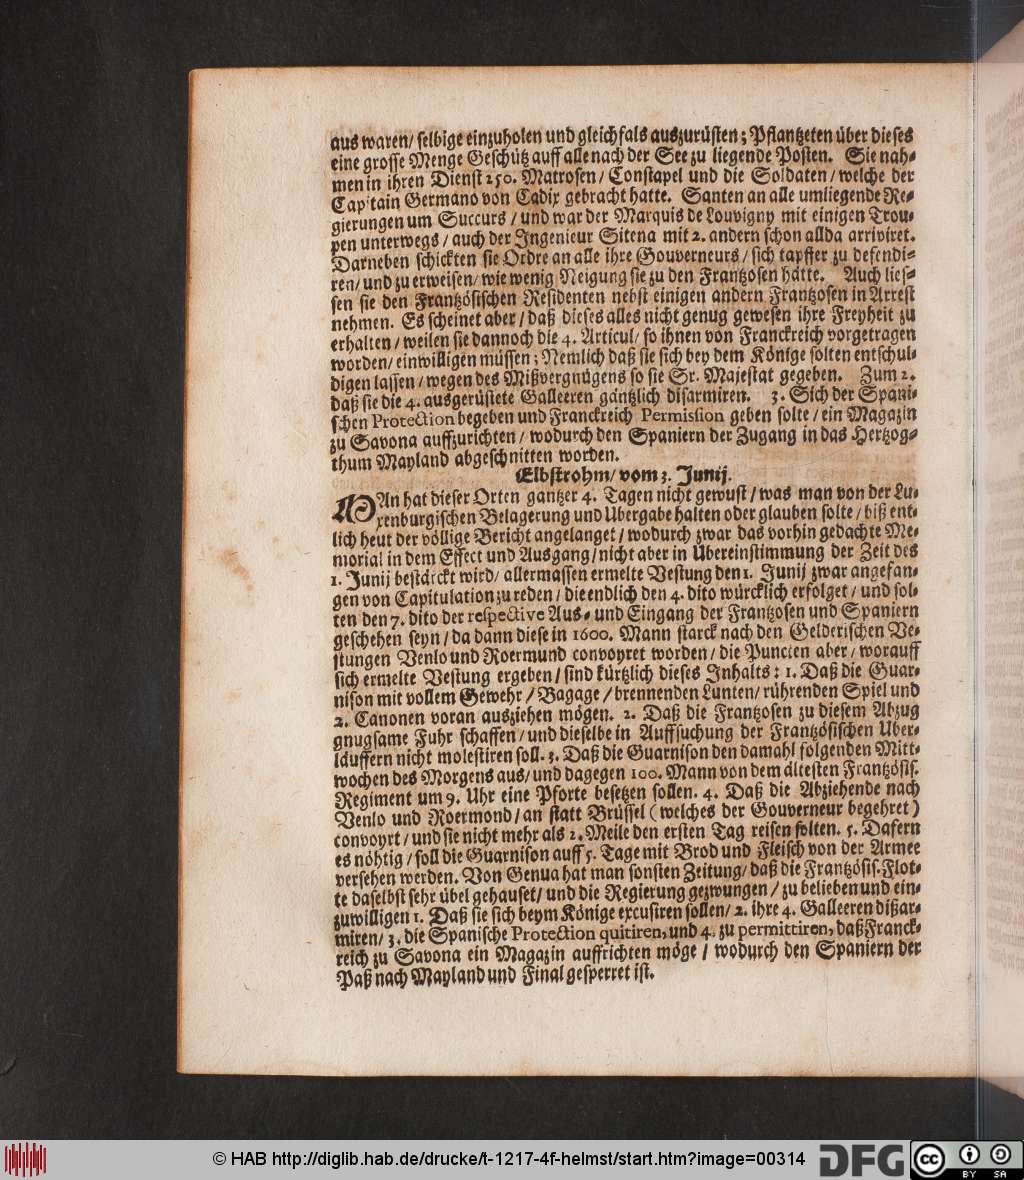 aus waren/ selbige einzuholen und gleichfals auszurüsten; Pflantzeten über dieses
eine grosse Menge Geschütz auff alle nach der See zu liegende Posten. Sie nah-
men in ihren Dienst 250. Matrosen/ Constapel und die Soldaten/ welche der
Captain Germano von Cadix gebracht hatte. Santen an alle umliegende Re-
gierungen um Succurs / und war der Marquis de Louvigny mit einigen Trou-
pen unterwegs / auch der Ingenieur Sitena mit 2. andern schon allda arriviret.
Darneben schickten sie Ordre an alle ihre Gouverneurs / sich tapffer zu defendi-
ren/ und zu erweisen/ wie wenig Neigung sie zu den Frantzosen hätte. Auch lies-
sen sie den Frantzösischen Residenten nebst einigen andern Frantzosen in Arrest
nehmen. Es scheinet aber / daß dieses alles nicht genug gewesen ihre Freyheit zu
erhalten / weilen sie dannoch die 4. Articul/ so ihnen von Franckreich vorgetragen
worden/ einwilligen müssen; Nemlich daß sie sich bey dem Könige solten entschul-
digen lassen / wegen des Mißvergnügens so sie Sr. Majestat gegeben. Zum 2.
daß sie die 4. ausgerüstete Galleeren gäntzlich disarmiren. 3. Sich der Spani-
schen Protection begeben und Franckreich Permission geben solte / ein Magazin
zu Savona auffzurichten / wodurch den Spaniern der Zugang in das Hertzog-
thum Mayland abgeschnitten worden.
Elbstrohm/ vom 3. Junij.
MAn hat dieser Orten gantzer 4. Tagen nicht gewust / was man von der Lu-
xenburgischen Belagerung und Ubergabe halten oder glauben solte / biß ent-
lich heut der völlige Bericht angelanget / wodurch zwar das vorhin gedachte Me-
morial in dem Effect und Ausgang / nicht aber in Übereinstimmung der Zeit des
1. Junij bestärckt wird/ allermassen ermelte Vestung den 1. Junij zwar angefan-
gen von Capitulation zu reden / die endlich den 4. dito würcklich erfolget / und sol-
ten den 7. dito der respective Aus- und Eingang der Frantzosen und Spaniern
geschehen seyn / da dann diese in 1600. Mann starck nach den Gelderischen Ve-
stungen Venlo und Roermund convoyret worden / die Puncten aber / worauff
sich ermelte Vestung ergeben / sind kürtzlich dieses Inhalts: 1. Daß die Guar-
nison mit vollem Gewehr / Bagage / brennenden Lunten/ rührenden Spiel und
2. Canonen voran ausziehen mögen. 2. Daß die Frantzosen zu diesem Abzug
gnugsame Fuhr schaffen / und dieselbe in Auffsuchung der Frantzösischen Uber-
läuffern nicht molestiren soll. 3. Daß die Guarnison den damahl folgenden Mitt-
wochen des Morgens aus/ und dagegen 100. Mann von dem ältesten Frantzösis.
Regiment um 9. Uhr eine Pforte besetzen sollen. 4. Daß die Abziehende nach
Venlo und Roermond / an statt Brüssel ( welches der Gouverneur begehret )
convoyrt / und sie nicht mehr als 2. Meile den ersten Tag reisen solten. 5. Dafern
es nöhtig / soll die Guarnison auff 5. Tage mit Brod und Fleisch von der Armee
versehen werden. Von Genua hat man sonsten Zeitung/ daß die Frantzösis. Flot-
te daselbst sehr übel gehauset/ und die Regierung gezwungen / zu belieben und ein-
zuwilligen 1. Daß sie sich beym Könige excusiren sollen/ 2. ihre 4. Galleeren dißar-
miren/ 3. die Spanische Protection quitiren, und 4. zu permittiren, daß Franck-
reich zu Savona ein Magazin auffrichten möge / wodurch den Spaniern der
Paß nach Mayland und Final gesperret ist.
© HAB http://diglib.hab.de/drucke/t-1217-4f-helmst/start.htm?image=00314
DFG
cc BY SA